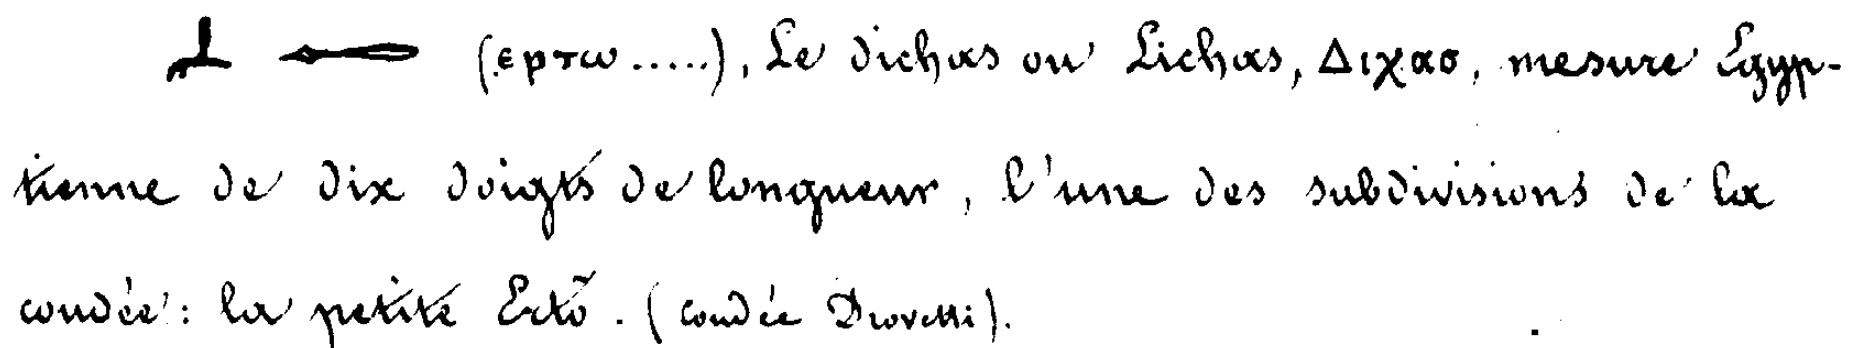 (ερτω.....), Le dichas ou Lichas, Διχασ, mesure Égyp-
tienne de dix doigts de longueur, l'une des subdivisions de la
coudée: la petite Ertô. (coudée Drovetti).